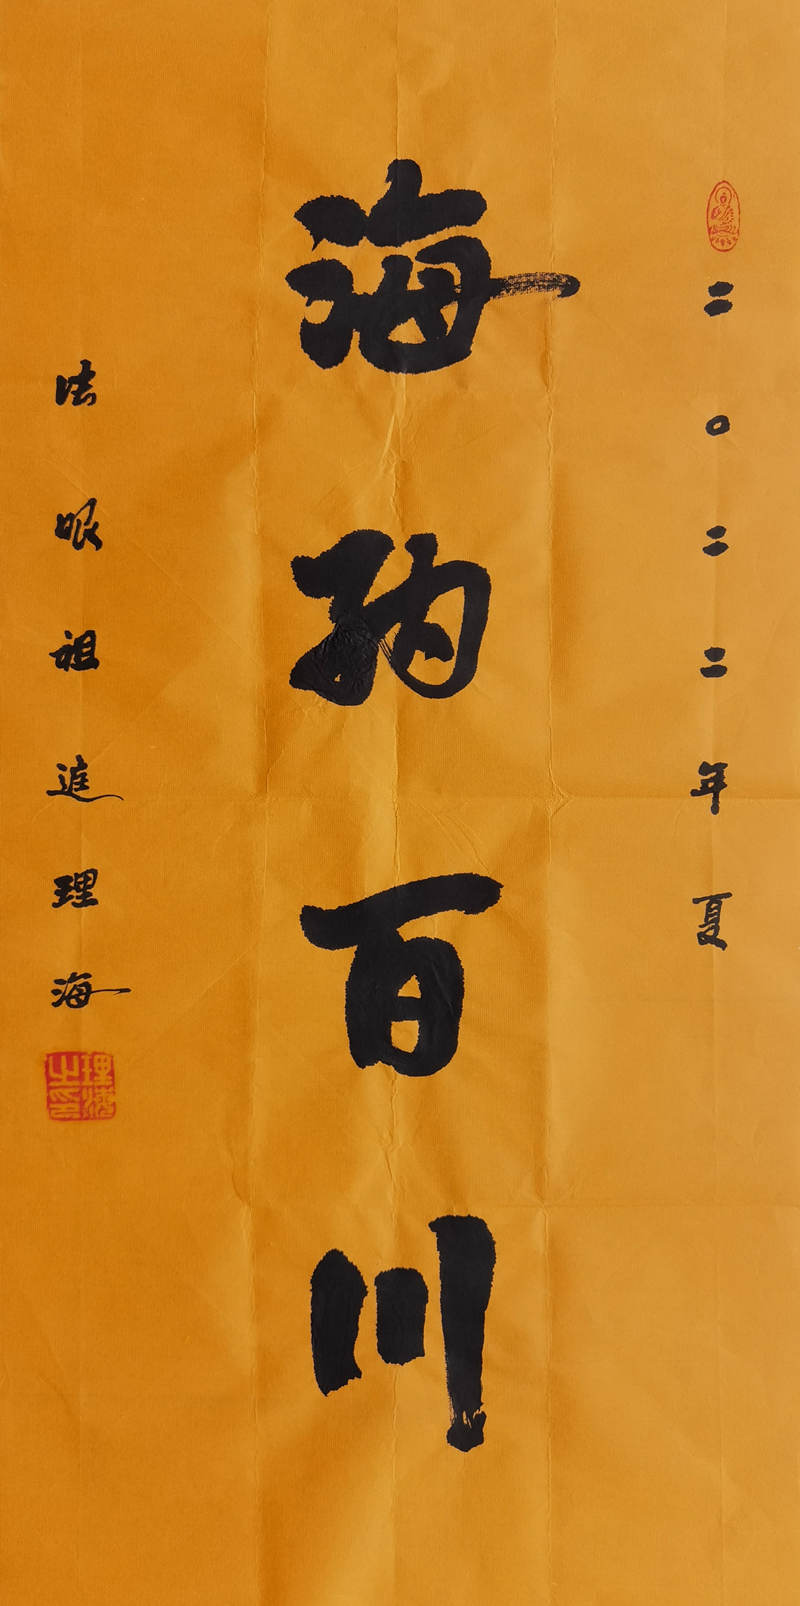 二〇二二年夏
海纳百川
法眼祖庭理海
理海之印